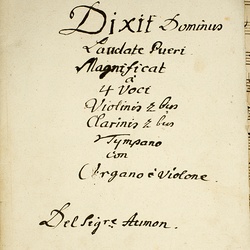 Dixit Dominus
Laudate Pueri
Magnificat
à
4 Voci
Violinis 2bus
Clarinis 2bus
Tympano
con
Organo è Violone.
Del Sigre: Aumon.